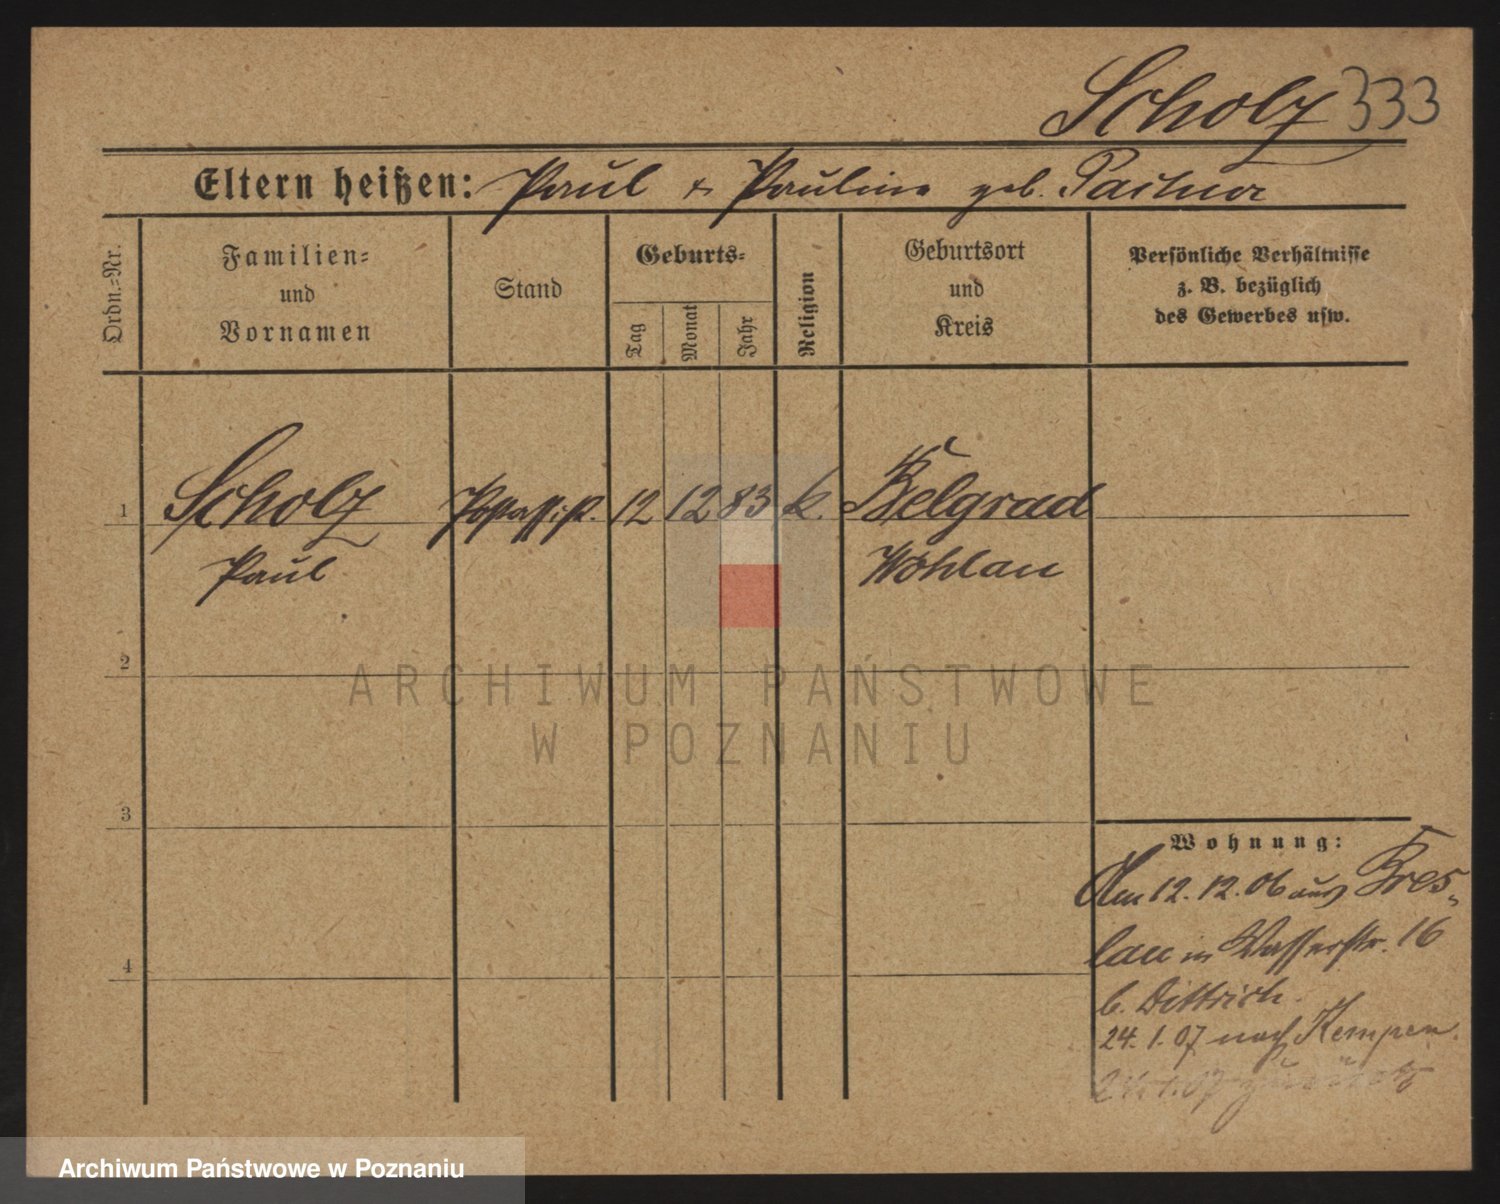 Scholz 333
Eltern heißen: Paul & Pauline geb.
Ordn.-Nr.
Familien- und Vornamen
Stand
Geburts-
Tag
Monat
Jahr
Religion
Geburtsort und Kreis
Persönliche Verhältnisse
z. B. bezüglich
des Gewerbes usw.
1 Scholz Postassist. 12 12 83 k. Belgrad
Paul Wohlau
2
ARCHIWUM PAŃSTWOWE
W POZNANIU
3
Wohnung:
Am 12.12.06 aus Bres-
lau in Wasserstr. 16
b. Dittrich.
4
24.1.07 nach Kempen.
Archiwum Państwowe w Poznaniu